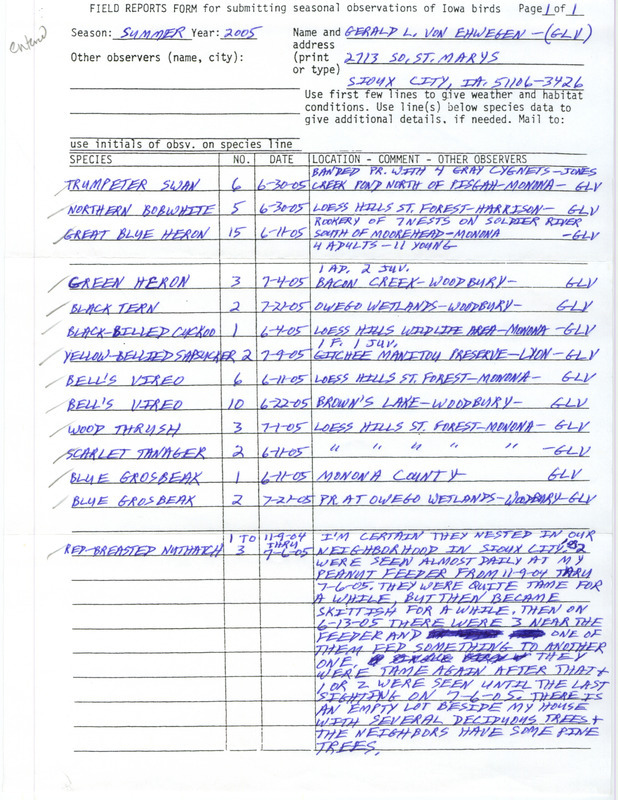 FIELD REPORTS FORM for submitting seasonal observations of Iowa birds Page 1 of 1
entered
Season: SUMMER Year: 2005 Name and GERALD L. VON EHWEGEN-(GLV)
address
Other observers (name, city): (print 2713 SO. ST. MARYS
or type)
SIOUX CITY, IA. 51106-3426
Use first few lines to give weather and habitat
conditions. Use line(s) below species data to
give additional details, if needed. Mail to:
use initials of obsv. on species line
SPECIES NO. DATE LOCATION - COMMENT - OTHER OBSERVERS
BANDED PR. WITH 4 GRAY CYGNETS-JONES
TRUMPETER SWAN 6 6-30-05 CREEK POND NORTH OF PISGAH-MONONA- GLV
NORTHERN BOBWHITE 5 6-30-05 LOESS HILLS ST. FOREST-HARRISON- GLV
ROOKERY OF 7 NESTS ON SOLDIER RIVER
GREAT BLUE HERON 15 6-11-05 SOUTH OF MOOREHEAD-MONONA -GLV
4 ADULTS-11 YOUNG
1 AD. 2 JUV.
GREEN HERON 3 7-4-05 BACON CREEK-WOODBURY- GLV
BLACK TERN 2 7-21-05 OWEGO WETLANDS-WOODBURY- GLV
BLACK-BILLED CUCKOO 1 6-4-05 LOESS HILLS WILDLIFE AREA-MONONA-GLV
1 F. 1 JUV.
YELLOW-BELLIED SAPSUCKER 2 7-9-05 GITCHEE MANITOU PRESERVE-LYON-GLV
BELL'S VIREO 6 6-11-05 LOESS HILLS ST. FOREST-MONONA- GLV
BELL'S VIREO 10 6-22-05 BROWN'S LAKE-WOODBURY- GLV
WOOD THRUSH 3 7-1-05 LOESS HILLS ST. FOREST-MONONA- GLV
SCARLET TANAGER 2 6-11-05 " " " " " -GLV
BLUE GROSBEAK 1 6-11-05 MONONA COUNTY GLV
BLUE GROSBEAK 2 7-21-05 PR. AT OWEGO WETLANDS-WOODBURY-GLV
RED-BREASTED NUTHATCH 1 TO 3 11-9-04 THRU 7-6-05 I'M CERTAIN THEY NESTED IN OUR
NEIGHBORHOOD IN SIOUX CITY. 1 OR 2
WERE SEEN ALMOST DAILY AT MY
PEANUT FEEDER FROM 11-9-04 THRU
7-6-05. THEY WERE QUITE TAME FOR
A WHILE, BUT THEN BECAME
SKITTISH FOR A WHILE. THEN ON
6-13-05 THERE WERE 3 NEAR THE
FEEDER AND ONE OF
THEM FED SOMETHING TO ANOTHER
ONE. THEY
WERE TAME AGAIN AFTER THAT &
1 OR 2 WERE SEEN UNTIL THE LAST
SIGHTING ON 7-6-05. THERE IS
AN EMPTY LOT BESIDE MY HOUSE
WITH SEVERAL DECIDUOUS TREES &
THE NEIGHBORS HAVE SOME PINE
TREES.